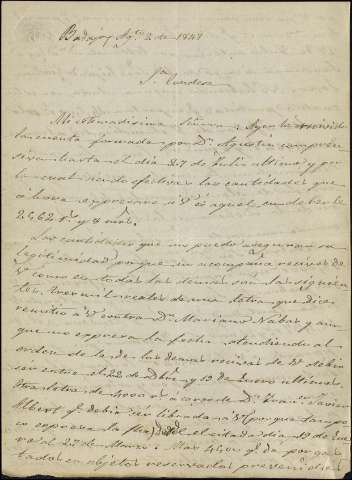 Badajoz Agto 2 de 1848
Sra Condesa
Mi estimadisima Señora: Ayer he recibido
la cuenta formada por Dn Agustin compren
siva hasta el dia 27 de Julio ultimo y por
la cual siendo efectivas las cantidades que
ahora expresaré á V es aquel en deber
2,662 rs y 8 mrs.
Las cantidades que no puedo asegurar su
legitimidad porque no acompaña recivos de
V como de todas las demas son las siguien
tes. tres mil reales de una letra que dice
remitió á V contra Dn Mariano Nabas y aun
que no expresa la fecha, atendiendo al
orden de la de los demas recivos de V debió
ser entre el 22 de Dbre y 13 de Enero ultimos.
Otra letra de 4000 rs á cargo de Dn Francco Javier
Albert qe debia ser librada á V (porque tampo
co expresa la fha) el citado dia 13 de Ene
ro al 27 de Marzo. Mas 4,500 qe da por gas
tados en objetos reservados prevenidos